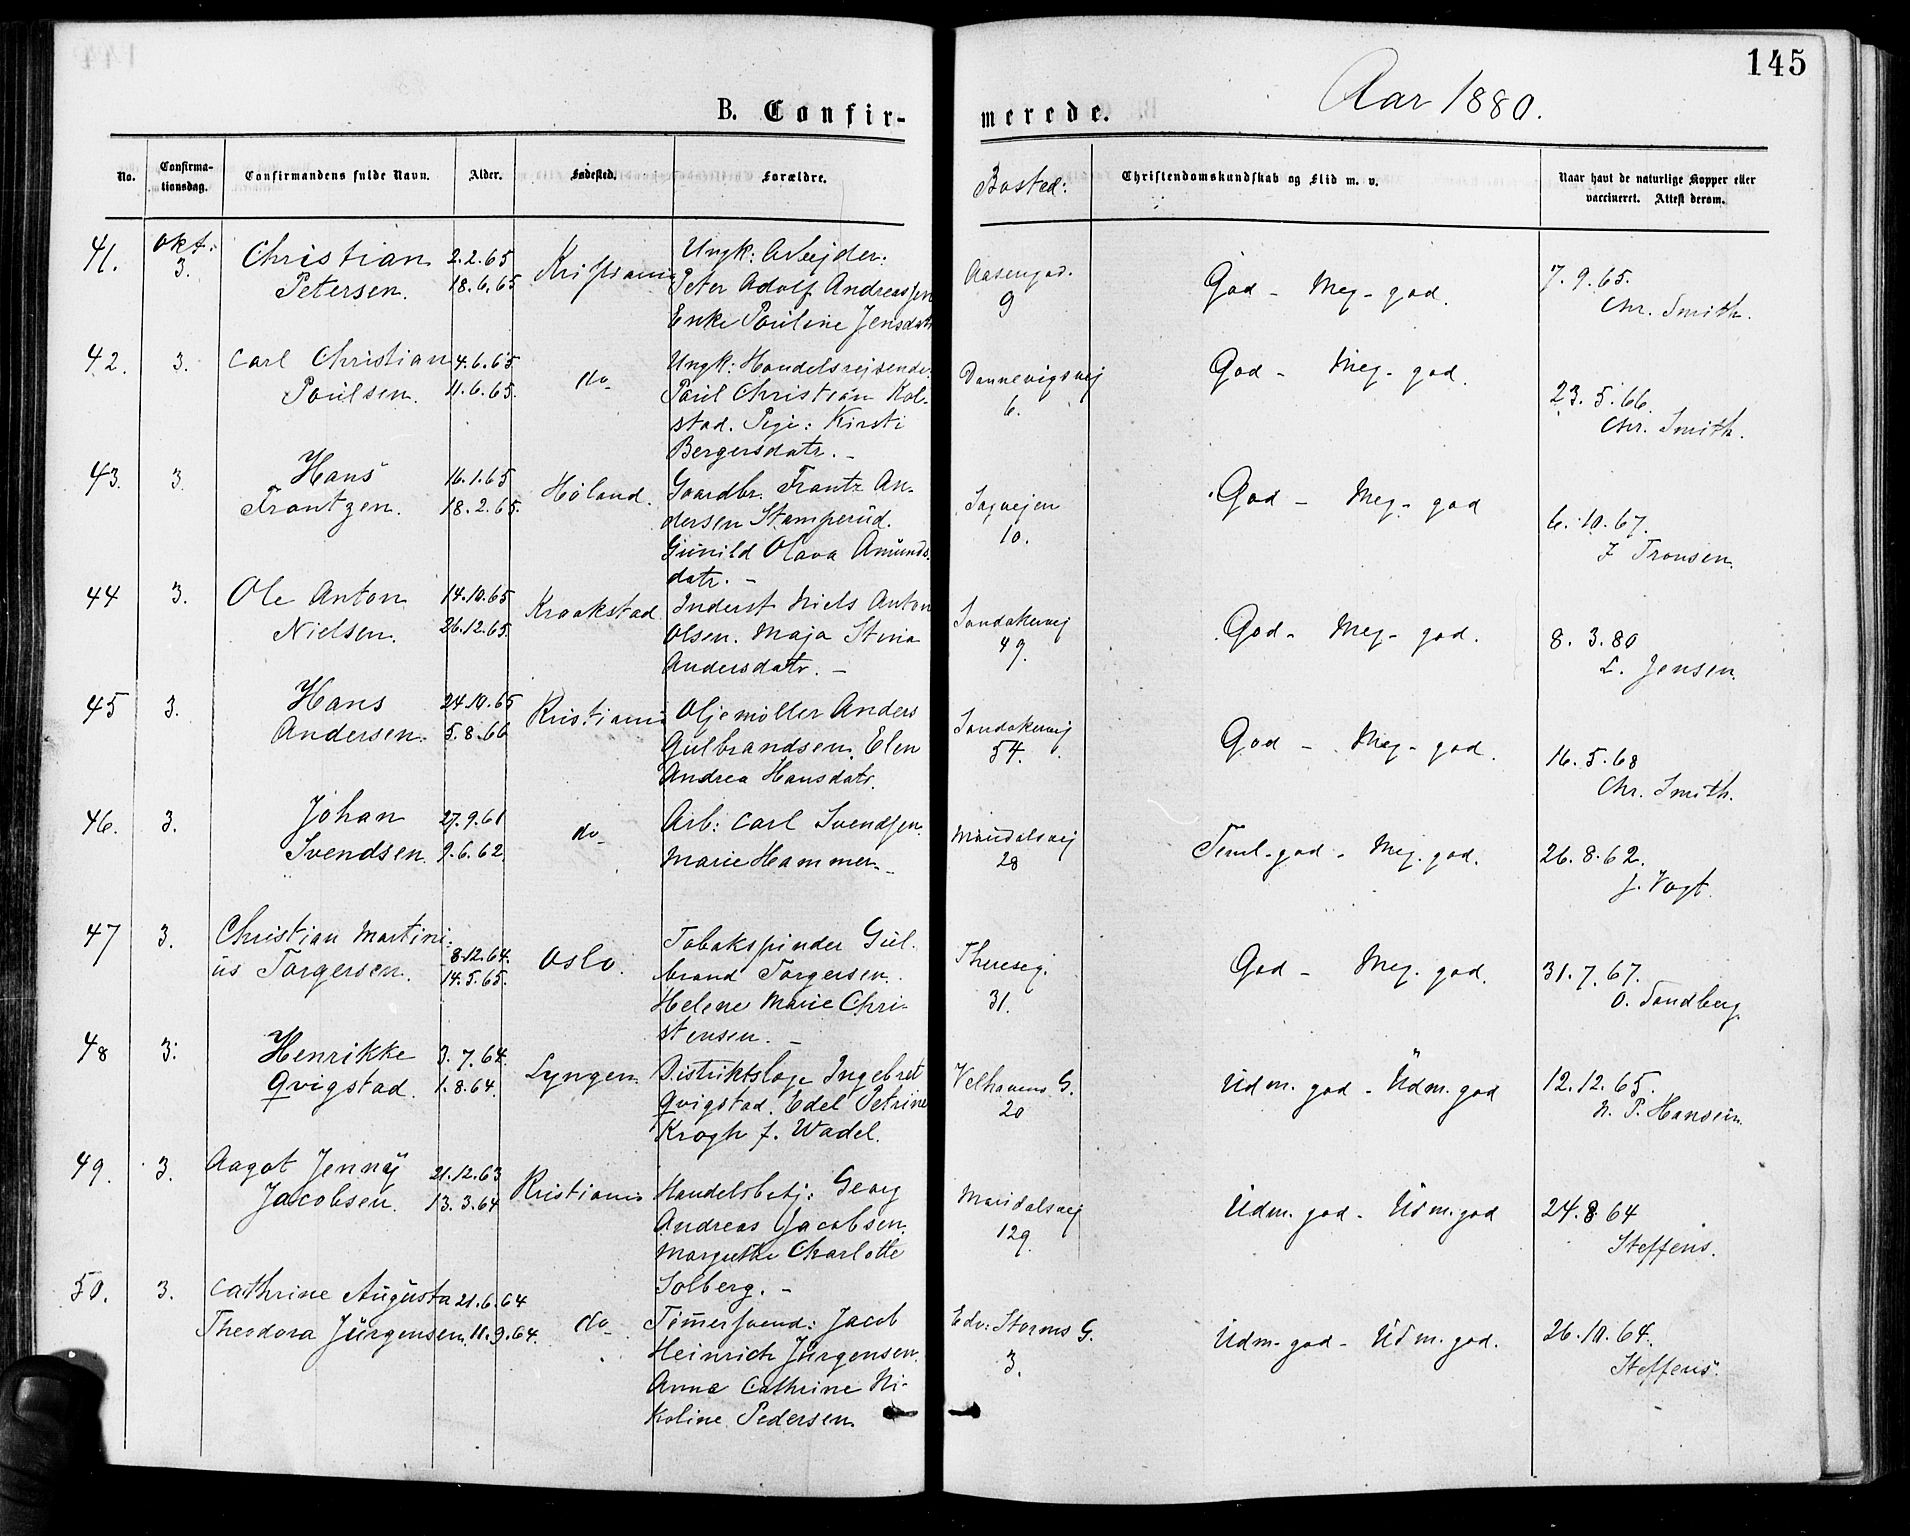 145
B. Confir-
merede.
Aar 1880.
No.
Confirma-
tionsdag.
Confirmandens fulde Navn.
Alder.
Fødested.
Forældre.
Bosted:
Christendomskundskab og Flid m. v.
Naar havt de naturlige Kopper eller
vaccineret. Attest derom.
41.
Okt:
3.
Christian
Petersen.
2.2.65
18.6.65
Kristiania
Ungk: Arbejder:
Peter Adolf Andreassen
Enke Pauline Jensdatr
Aasengad.
9
God - Meg - god.
7.9.65.
Chr. Smith.
42.
3.
Carl Christian
Poulsen.
4.6.65
11.6.65.
do
Ungk: Handelsrejsende:
Poul Christian Kol-
stad. Pige: Kirsti
Bergersdatr. -
Dannevigsvej
6.
God - Meg - god.
23.5.66.
Chr. Smith.
43.
3.
Hans
Frantzen.
16.1.65
18.2.65.
Høland.
Gaardbr. Frantz An-
dersen Stamperud.
Gunild Olava Amunds
datr. -
Sagvejen
10.
God - Meg - god
6.10.67.
F Tronsen.
44
3.
Ole Anton
Nielsen.
14.10.65
26.12.65.
Kraakstad
Inderst Niels Anton
Olsen. Maja Stina
Andersdatr. -
Sandakervej
49.
God - Meg - god.
8.3.80
L. Jensen.
45
3.
Hans
Andersen.
24.10.65
5.8.66
Kristiania
Oljemøller Anders
Gulbrandsen. Elen
Andrea Hansdatr.
Sandakervej
54.
God - Meg - god.
16.5.68
Chr. Smith.
46.
3.
Johan
Svendsen.
27.9.61
9.6.62.
do
Arb: Carl Svendsen.
Marie Hammer -
Maridalsvej
28
Teml. god - Meg. god.
26.8.62.
J. Vogt.
47
3.
Christian Martini-
us Torgersen.
8.12.64.
14.5.65.
Oslo.
Tobakspinder Gul-
brand Torgersen.
Helene Marie Chri-
stensen. -
Thereseg.
31.
God - Meg. god.
31.7.67.
O. Sandberg.
48
3.
Henrikke
Qvigstad.
3.7.64.
1.8.64.
Lyngen.
Distriktslæge Ingebret
Qvigstad. Edel Petrine
Krogh f. Wadel.
Velhavens G.
20
Udm. god - Udm. god
12.12.65.
N. P. Hansen.
49.
3.
Aagot Jenny
Jacobsen.
21.12.63
13.3.64
Kristiania
Handelsbetj: Georg
Andreas Jacobsen.
Margrethe Charlotte
Solberg. -
Maridalsvej
129.
Udm. god - Udm. god
24.8.64
Steffens.
50.
3.
Cathrine Augusta
Theodora Jürgensen.
21.6.64
11.9.64.
do
Tømersvend: Jacob
Heinrich Jürgensen.
Anna Cathrine Ni-
koline Pedersen.
Edv: Storms G.
3.
Udm. god - Udm. god.
26.10.64.
Steffens.